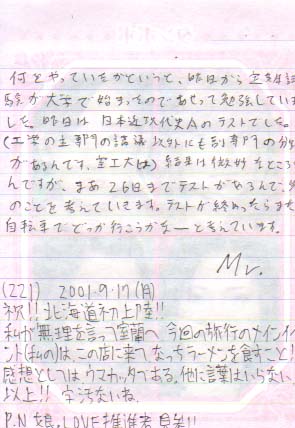 何をやっていたかというと、昨日から定期試
験が大学で始まったのであせって勉強していま
した。昨日は日本近現代史Aのテストでした。
(工学の主専門の講議以外にも副専門の
があるんです、室工大は) 結果は微妙なところ
んですが、まあ26日までテストがあるんで、
のことを考えていきます。テストが終わったらまた
自転車でどっか行こうかなーと考えています。
Mr.
(221) 2001.9.17(月)
祝!!北海道初上陸!!
私が無理を言って室蘭へ 今回の旅行のメインイベ
ント(私の)は、この店に来てなっちラーメンを食すこと!
感想としては、ウマカッタである。他に言葉はいらない。
以上!! 字汚ないね。
P.N 娘。LOVE推進者